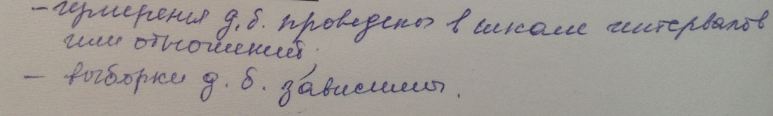 – измерения д. б. проведены в шкале интервалов
или отношений.
– выборки д. б. зависимы.